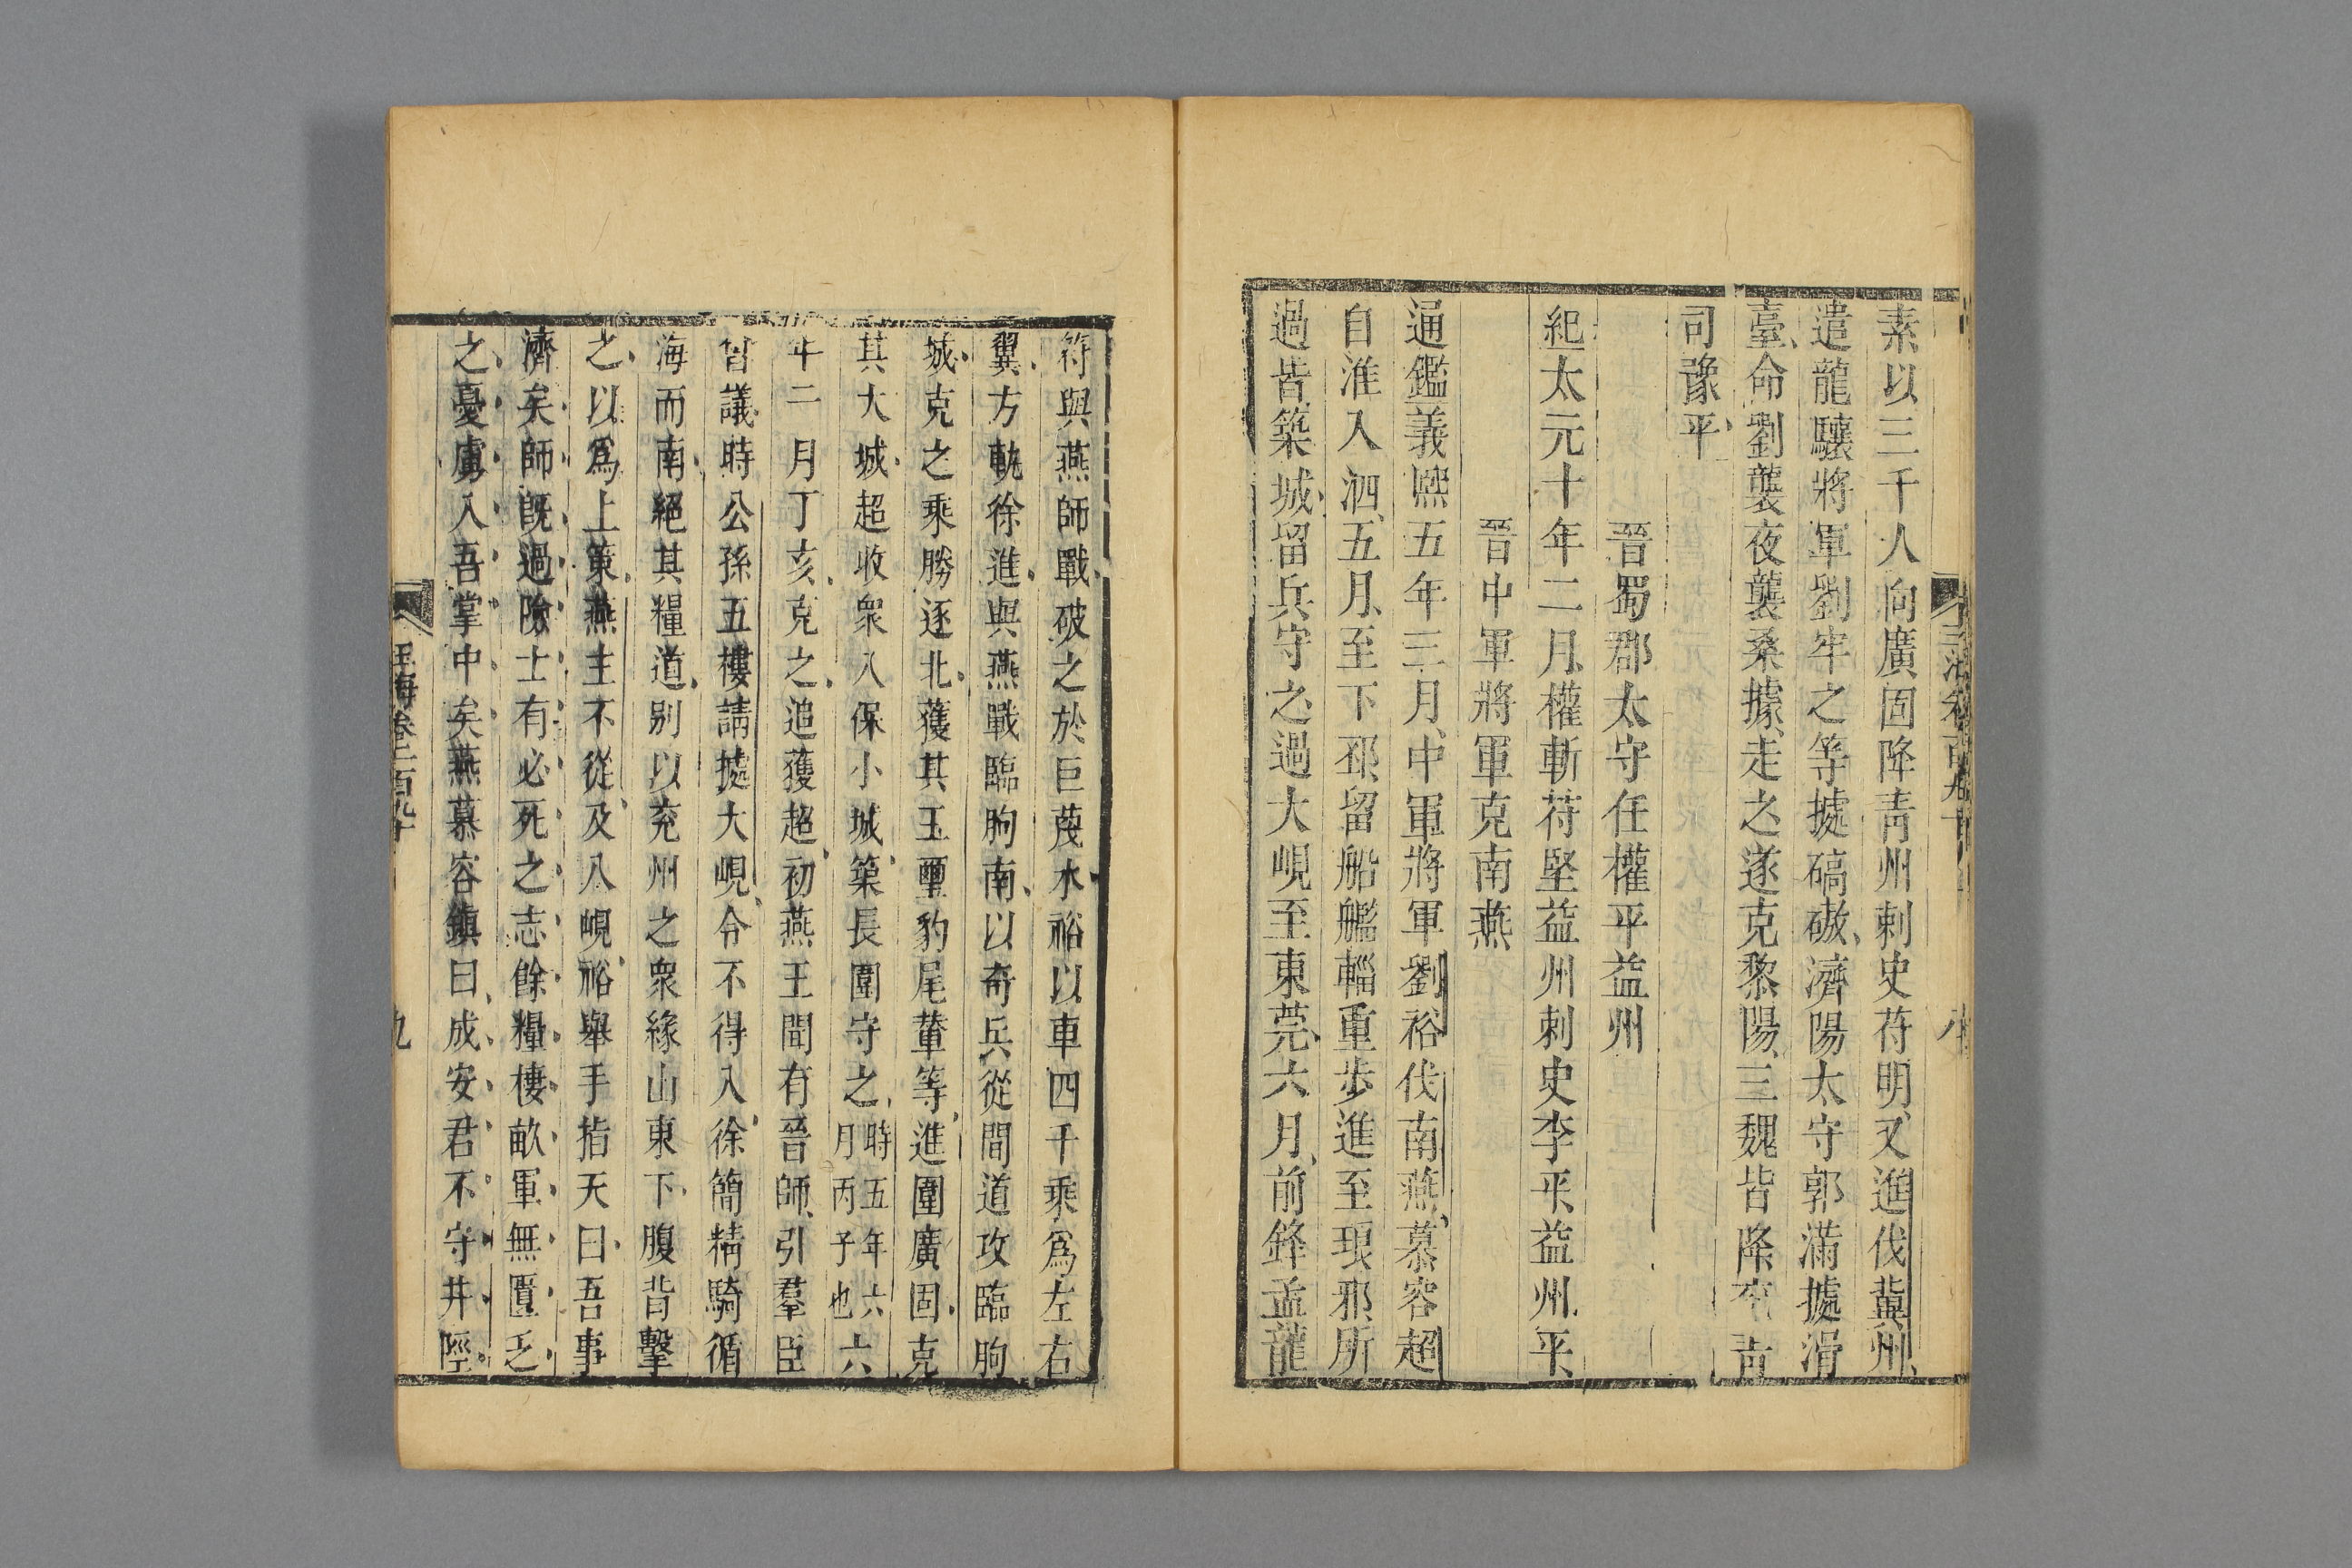 素以三千人向廣固降青州刺史苻明又進伐冀州
遣龍驤將軍劉牢之等據碻磝濟陽太守郭滿據滑
臺命劉襲夜襲桑據走之遂克黎陽三魏皆降兖青
司豫平
晉蜀郡太守任權平益州
紀太元十年二月權斬苻堅益州刺史李平益州平
晉中軍將軍克南燕
通鑑義熙五年三月中軍將軍劉裕伐南燕慕容超
自淮入泗五月至下邳留船艦輜重歩進至琅邪所
過皆築城留兵守之過大峴至東莞六月前鋒孟龍
符與燕師戰破之於巨蔑水裕以車四千乘爲左右
翼方軌徐進與燕戰臨朐南以奇兵從間道攻臨朐
城克之乘勝逐北獲其玉璽豹尾輦等進圍廣固克
其大城超收衆入保小城築長圍守之時五年六月丙子也六
年二月丁亥克之追獲超初燕王聞有晉師引羣臣
會議時公孫五樓請據大峴令不得入徐簡精騎循
海而南絕其糧道别以兖州之衆緣山東下腹背擊
之以爲上策燕主不從及入峴裕舉手指天曰吾事
濟矣師既過險士有必死之志餘糧棲畝軍無匱乏
之憂虜入吾掌中矣燕慕容鎮曰成安君不守井陘
玉海卷一百九十
九